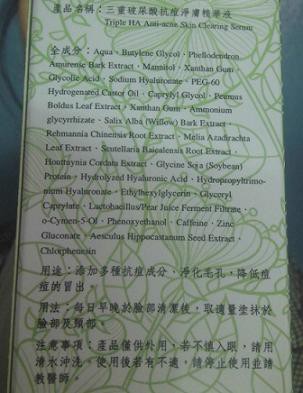 產品名稱：三重玻尿酸抗痘淨膚精華液
Triple HA Anti-acne Skin Clearing Serum
全成分：Aqua、Butylene Glycol、Phellodendron
Amurense Bark Extract、Mannitol、Xanthan Gum
Glycolic Acid、Sodium Hyaluronate、PEG-60
Hydrogenated Castor Oil、Caprylyl Glycol、Peumus
Boldus Leaf Extract、Xanthan Gum、Ammonium
glycyrrhizate、Salix Alba (Willow) Bark Extract、
Rehmannia Chinensis Root Extract、Melia Azadirachta
Leaf Extract、Scutellaria Baicalensis Root Extract、
Houttuynia Cordata Extract、Glycine Soja (Soybean)
Protein、Hydrolyzed Hyaluronic Acid、Hydropropyltrimo-
nium Hyaluronate、Ethylhexylglycerin、Glyceryl
Caprylate、Lactobacillus/Pear Juice Ferment Filtrate、
o-Cymen-5-Ol、Phenoxyethanol、Caffeine、Zinc
Gluconate、Aesculus Hippocastanum Seed Extract、
Chlorphenesin
用途：添加多種抗痘成分，淨化毛孔，降低痘
痘的冒出。
用法：每日早晚於臉部清潔後，取適量塗抹於
臉部及頸部。
注意事項：產品僅供外用，若不慎入眼，請用
清水沖洗。使用後若有不適，請停止使用並請
教醫師。